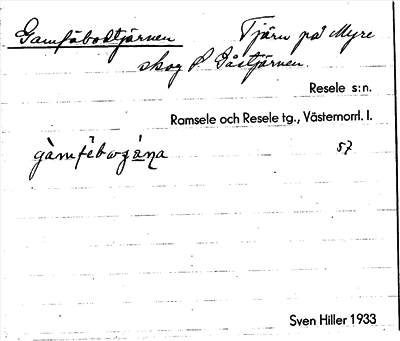 Gamfäbodtjärnen Tjärn på Myre
skog P Gåstjärnen.
Resele s:n.
Ramsele och Resele tg., Västernorrl. l.
57
Sven Hiller 1933